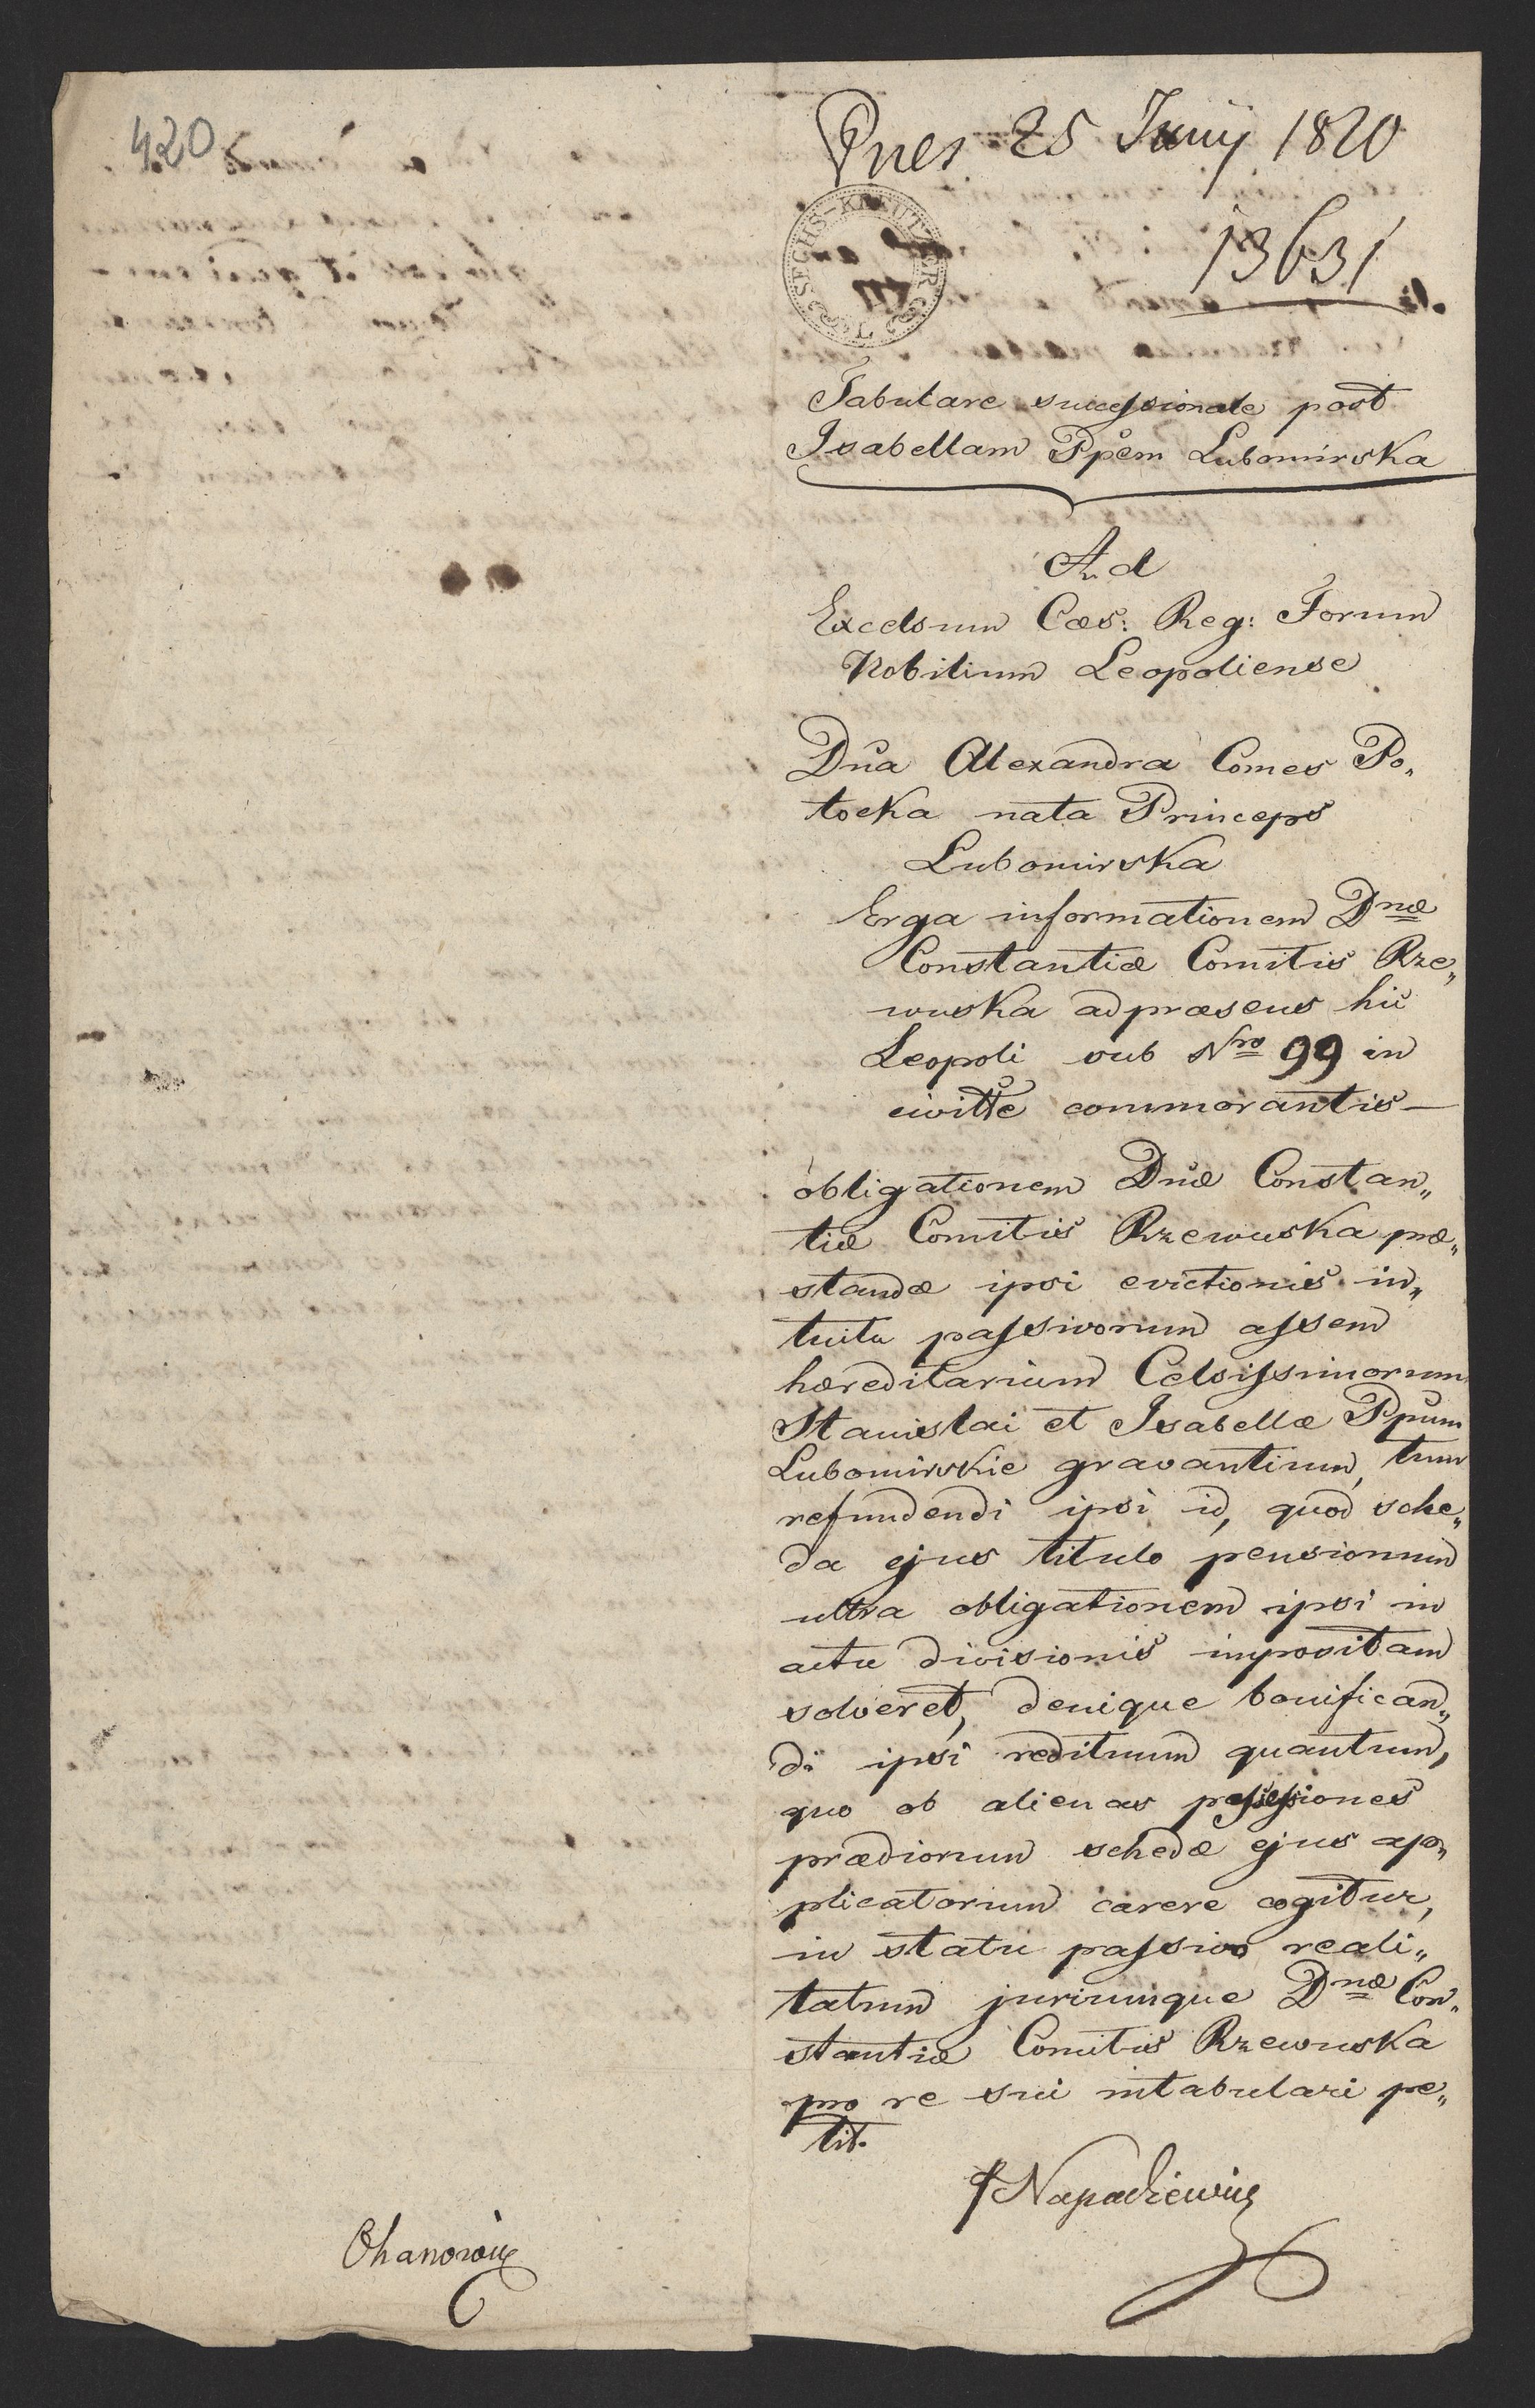 420
Pnes 25 Junij 1820
SECHS-KREUTZER
13631
Tabulare successionale post
Isabellam Ppem Lubomirska
Ad
Excelsum Caes: Reg: Forum
Nobilium Leopoliense
Dna Alexandra Comes Po„
tocka nata Princeps
Lubomirska
Erga informationem Dnæ
Constantiæ Comitis Rze„
wuska ad præsens hic
Leopoli sub Nro 99 in
civitte commorantis —
obligationem Dnæ Constan„
tiæ Comitis Rzewuska præ„
standæ ipsi evictionis in„
tuitu passivorum assem
hæreditarium Celsissimorum
Stanislai et Isabellæ Ppum
Lubomirskie gravantium, tum
refundendi ipsi id, quod sche„
da ejus titulo pensionum
ultra obligationem ipsi in
actu divisionis impositam
solveret, denique bonifican„
di ipsi redituum quantum,
quo ob alienas possessiones
prædiorum schedæ ejus ap„
plicatorum carere cogitur,
in statu passivo reali„
tatum juriumque Dnæ Con„
stantiæ Comitis Rzewuska
pro re sui intabulari pe„
tit.
Napadiewicz
Ohanowicz